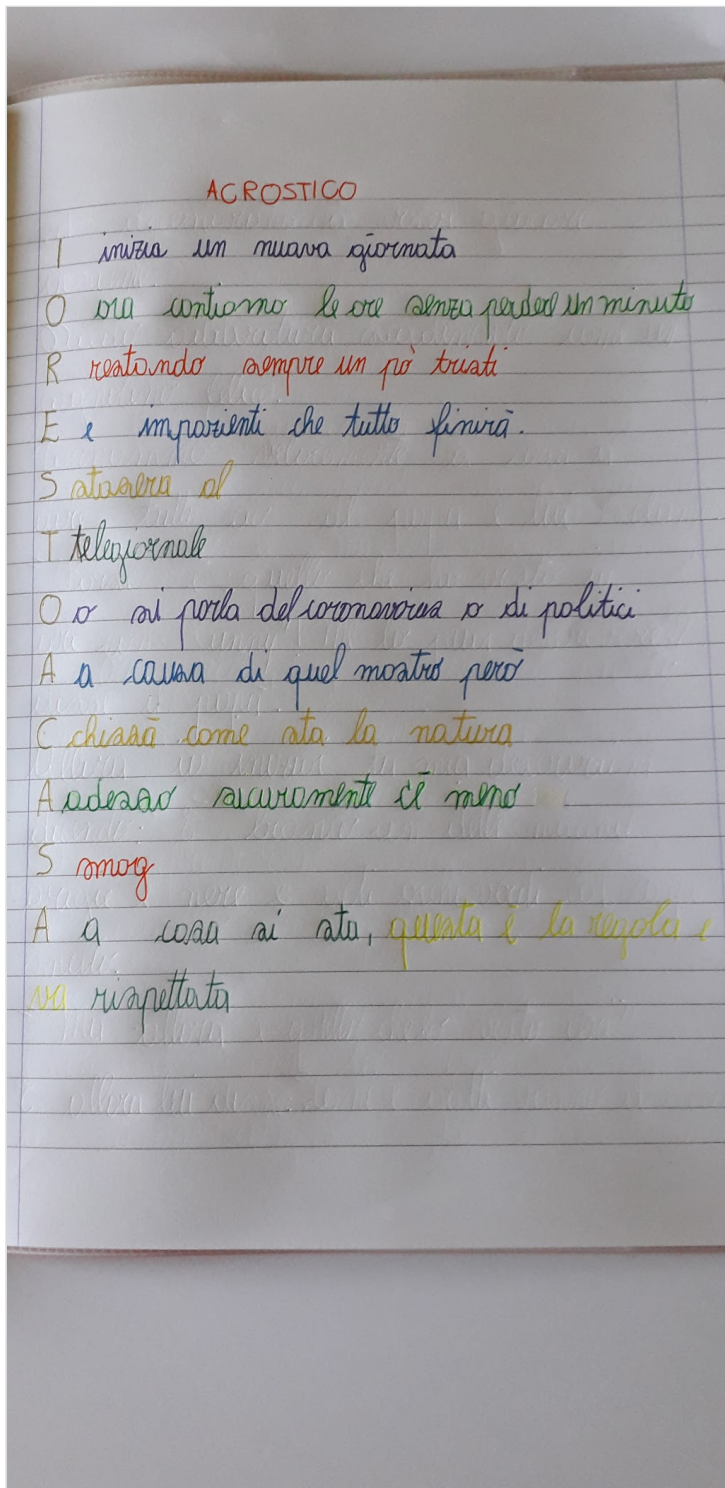 ACROSTICO
I inizia un nuava giornata
O ora contiamo le ore senza perdere un minuto
R restando sempre un pò tristi
E e impazienti che tutto finirà.
S stasera al
T telegiornale
O o si parla del coronavirus o di politici
A a causa di quel mostro però
C chissà come sta la natura
A adesso sicuramente c'è meno
S smog
A a casa si sta, questa è la regola e
va rispettata